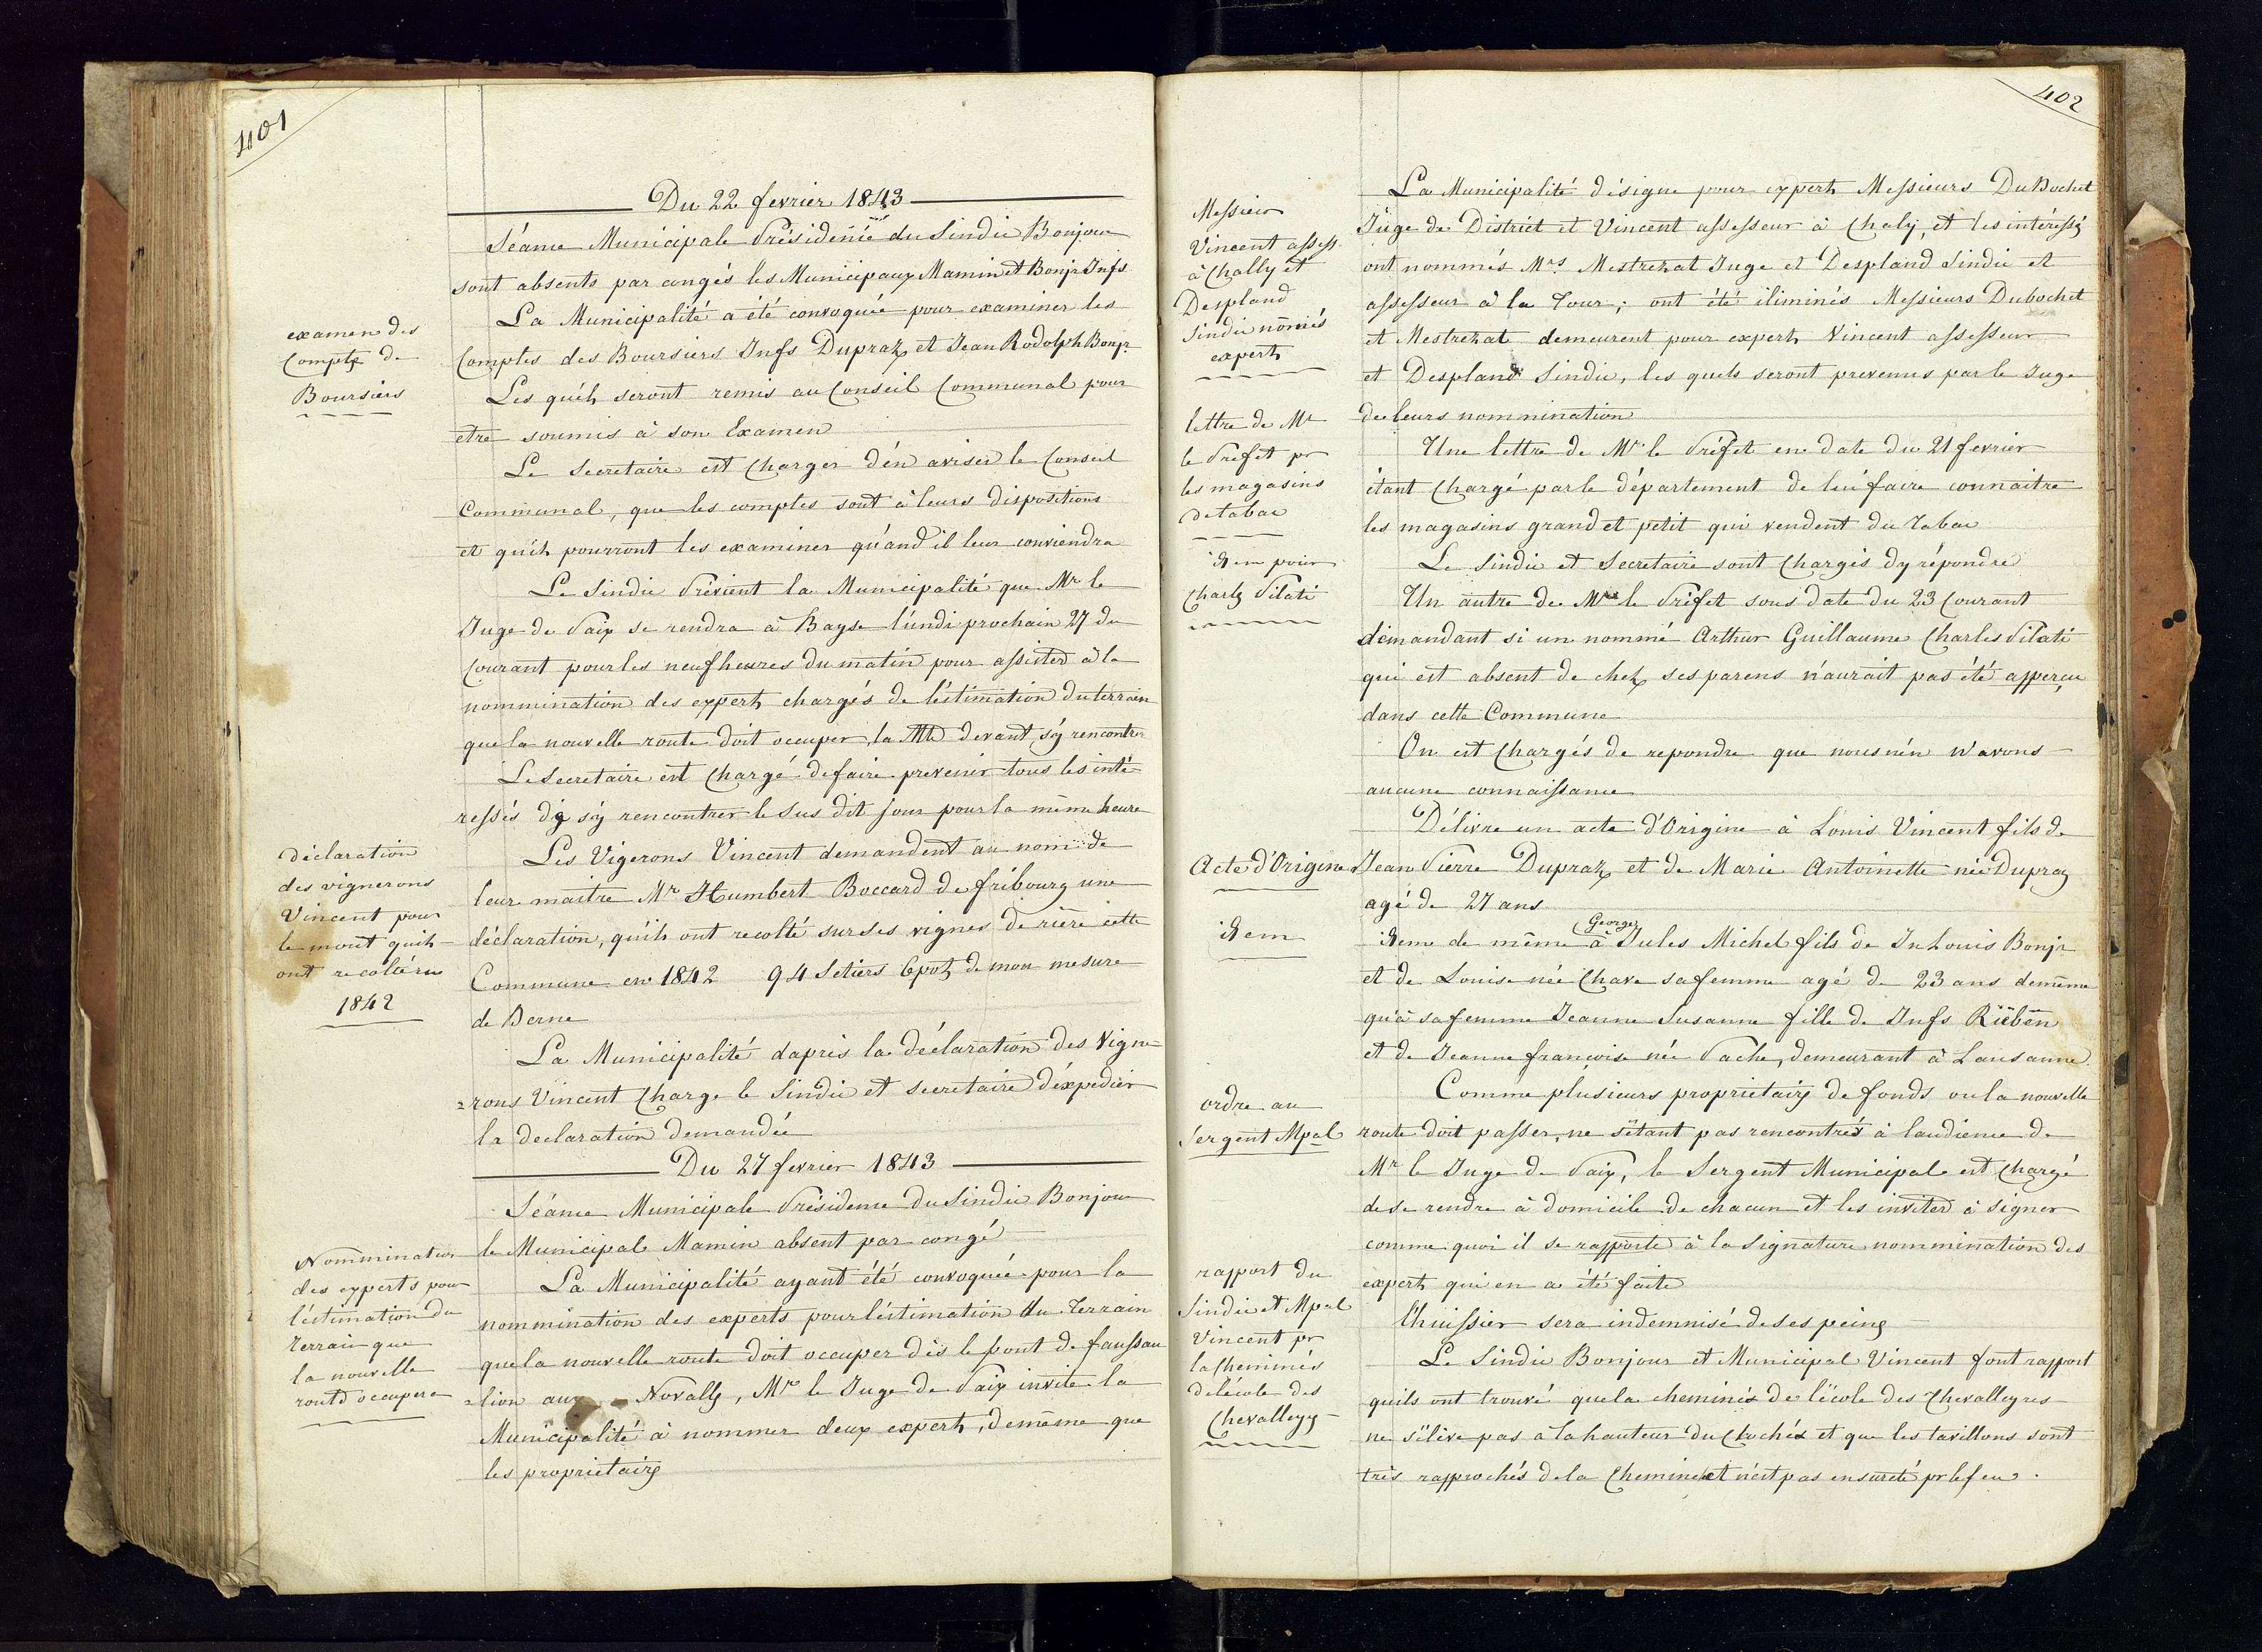 401
Du 22 fevrier 1843
Séance Municipale Présidence du Sindic Bonjour
sont absents par congés les Municipaux Mamin et Bonjr Jnfs
examen des
Compts de
Boursiers
La Municipalité a été convoquée pour examiner les
Comptes des Boursiers Jnfs Dupraz et Jean Rodolph Bonjr.
Les quéls seront remis au Conseil Communal pour
etre soumis à son Examen
Le Secretaire est Charger d'én aviser le Conseil
Communal, que les comptes sont à leurs dispositions
et qu'ils pourront les examiner qu'and il leur conviendra
Le Sindic Prévient la Municipalité que Mr le
Juge de Paix se rendra à Bayse lundi prochain 27 du
Courant pour les neuf heures du matin pour assister à la
nommination des experts chargés de l'éstimation du terrain
que la nouvelle route doit occuper, la Mté devant s'y rencontrer
Le Secretaire est Chargé de faire prevenir tous les inté-
ressés dy s'y rencontrer le Sus dit Jour pour la même heure
déclaration
des vignerons
Vincent pour
le mout quils
ont recolté en
1842
Les Vigerons Vincent demandent au nom de
leur maitre Mr Humbert Boccard de fribourg une
déclaration, qu'ils ont recolté sur ses vignes de rière cette
Commune en 1842 94 Setiers 6 pots de mou mesure
de Berne
La Municipalité dapris la déclaration des Vigne-
=rons Vincent Charge le Sindic et Secretaire d'éxpedier
la declaration demandée
Du 27 fevrier 1843
Séance Municipale Présidence du Sindic Bonjour
le Municipal Mamin absent par congé
Nommination
des experts pour
l'éstimation du
terrain que
la nouvelle
route occupera
La Municipalité ayant été convoquée pour la
nommination des experts pour l'éstimation du Terrain
que la nouvelle route doit occuper dès le pont de faussau
=lion aux Novalls, Mr le Juge de Paix invite la
Municipalité à nommer deux experts, de même que
les proprietaires
402
Messieurs
Vincent assess.
à Chally et
Despland
Sindic només
experts
La Municipalité désigne pour experts Messieurs DuBochet
Juge de District et Vincent assesseur à Chaly, et les intéressés
ont nommés Mrs. Mestrezat Juge et Despland Sindic et
assesseur à la Tour; ont été iliminés Messieurs Dubochet
et Mestrezat demeurent pour experts Vincent assesseur
et Despland Sindic, les quels seront prevenus par le Juge
de leurs nommination
lettre de Mr
le Prefet pr
les magasins
de tabac
Une lettre de Mr. le Préfet en date du 21 fevrier
étant Chargé par le département de lui faire connaitre
les magasins grand et petit qui vendent du Tabac
Le Sindic et Secretaire sont Chargés dy répondre
idem pour
Charls Pilati
Un autre de Mr le Préfet sous date du 23 Courant
démandant si un nommé Arthur Guillaume Charles Pilati
qui est absent de chez ses parens n'aurait pas été apperçu
dans cette Commune
On est Chargés de repondre que nous nén n'avons
aucune connaissance
Acte d'Origine
Délivre un acte d'Origine à Louis Vincent fils de
Jean Pierre Dupraz et de Marie Antoinette née Dupraz
agé de 27 ans
idem
George
idem de même à Jules Michel fils de Jn Louis Bonjr
et de Louise née Chave sa femme agé de 23 ans demême
qu'à sa femme Jeanne Susanne fille de Jnfs Rüben
et de Jeanne françoise née Pache, demeurant à Lausanne
ordre au
Sergent Mpal
Comme plusieurs proprietairs de fonds ou la nouvelle
route doit passer, ne s'étant pas rencontrés à laudience de
Mr le Juge de Paix, le Sergent Municipal est Chargé
de se rendre à domicile de chacun et les inviter à Signer
comme quoi il se rapporte à la Signature nommination des
experts qui en a été faite
L'huissier sera indemnisé de ses peines
rapport du
Sindic et Mpal
Vincent pr
la Cheminés
de l'école des
Chevalleyrs
Le Sindic Bonjour et Municipal Vincent font rapport
quils ont trouvé que la cheminés de l'école des Chevalleyres
ne s'élève pas à la hauteur du Clochés et que les tavillons sont
très rapprochés de la Cheminé et n'est pas en sureté pr le feu.